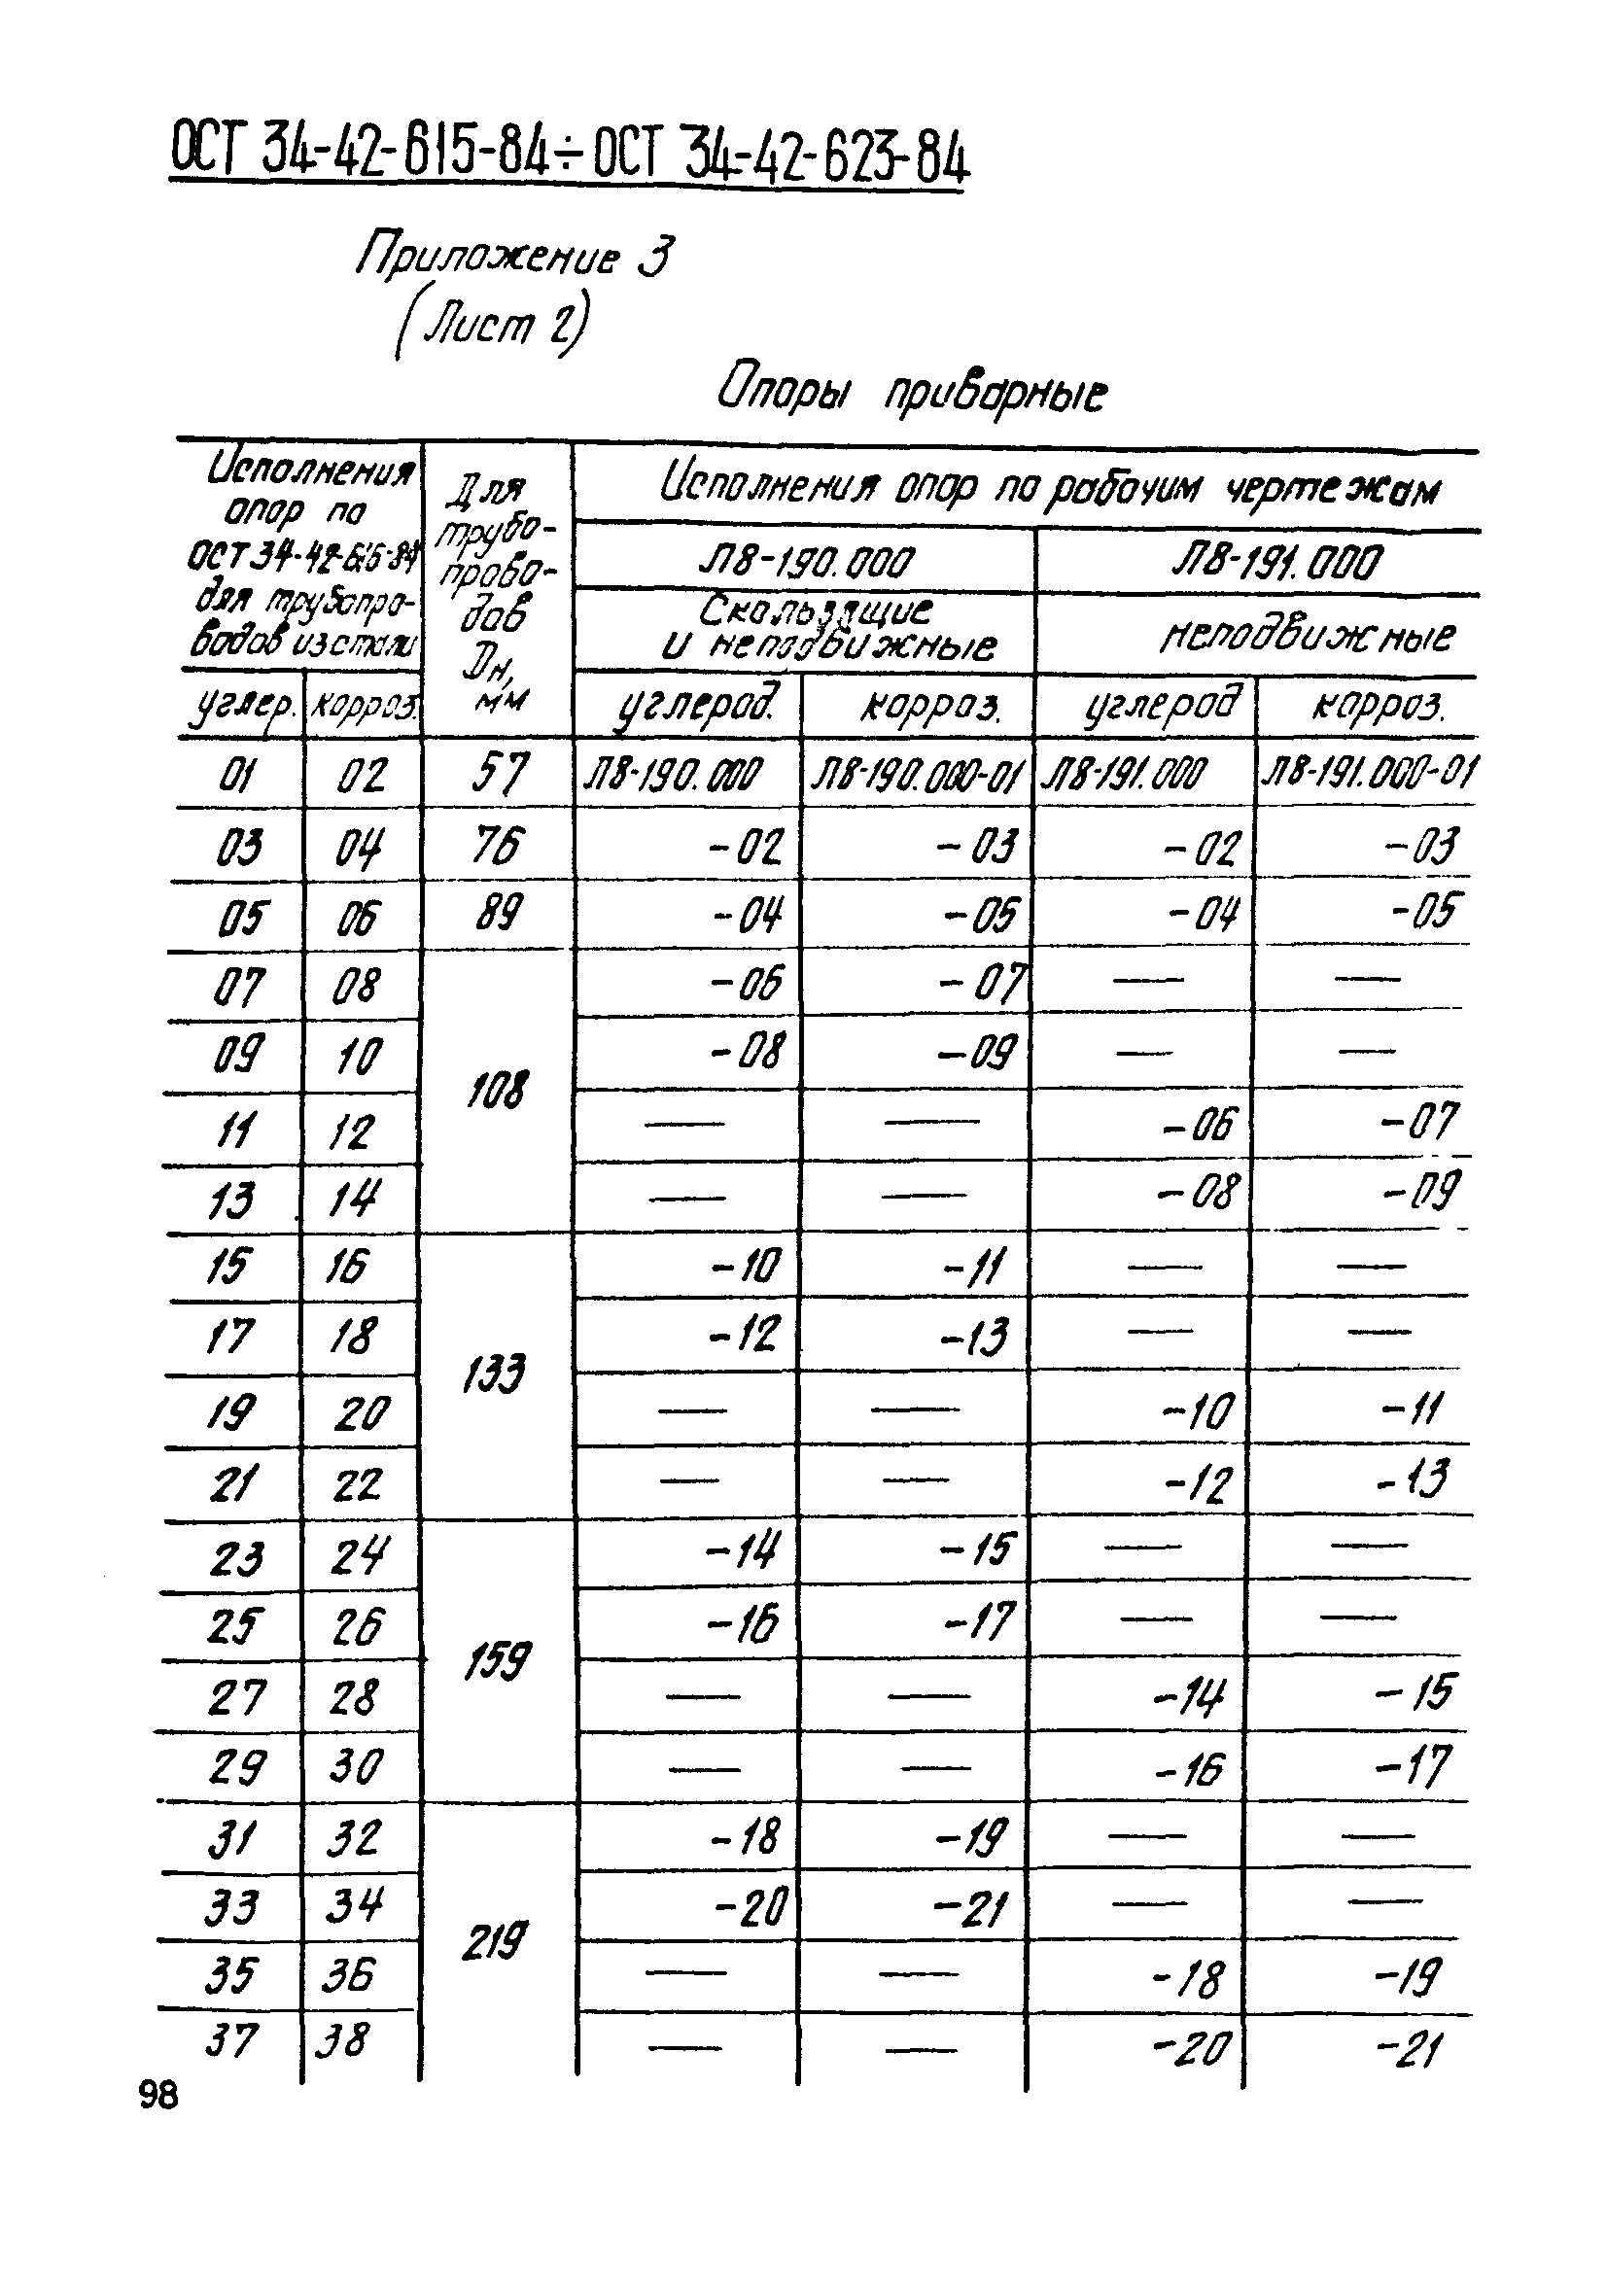 ОСТ 34-42-615-84÷ОСТ 34-42-623-84
Приложение 3
(Лист 2)
Опоры приварные
Исполнения
опор по
ОСТ 34-42-615-84
для трубопро-
водов из стали
Для
трубо-
прово-
дов
Dн,
мм
Исполнения опор по рабочим чертежам
Л8-190.000 Л8-191.000
Скользящие
и неподвижные
неподвижные
углер. корроз. углерод. корроз. углерод корроз.
01 02 57 Л8-190.000 Л8-190.000-01 Л8-191.000 Л8-191.000-01
03 04 76 -02 -03 -02 -03
05 06 89 -04 -05 -04 -05
07 08 -06 -07 — —
09 10 -08 -09 — —
108
11 12 — — -06 -07
13 14 — — -08 -09
15 16 -10 -11 — —
17 18 -12 -13 — —
133
19 20 — — -10 -11
21 22 — — -12 -13
23 24 -14 -15 — —
25 26 -16 -17 — —
159
27 28 — — -14 -15
29 30 — — -16 -17
31 32 -18 -19 — —
33 34 -20 -21 — —
219
35 36 — — -18 -19
37 38 — — -20 -21
98